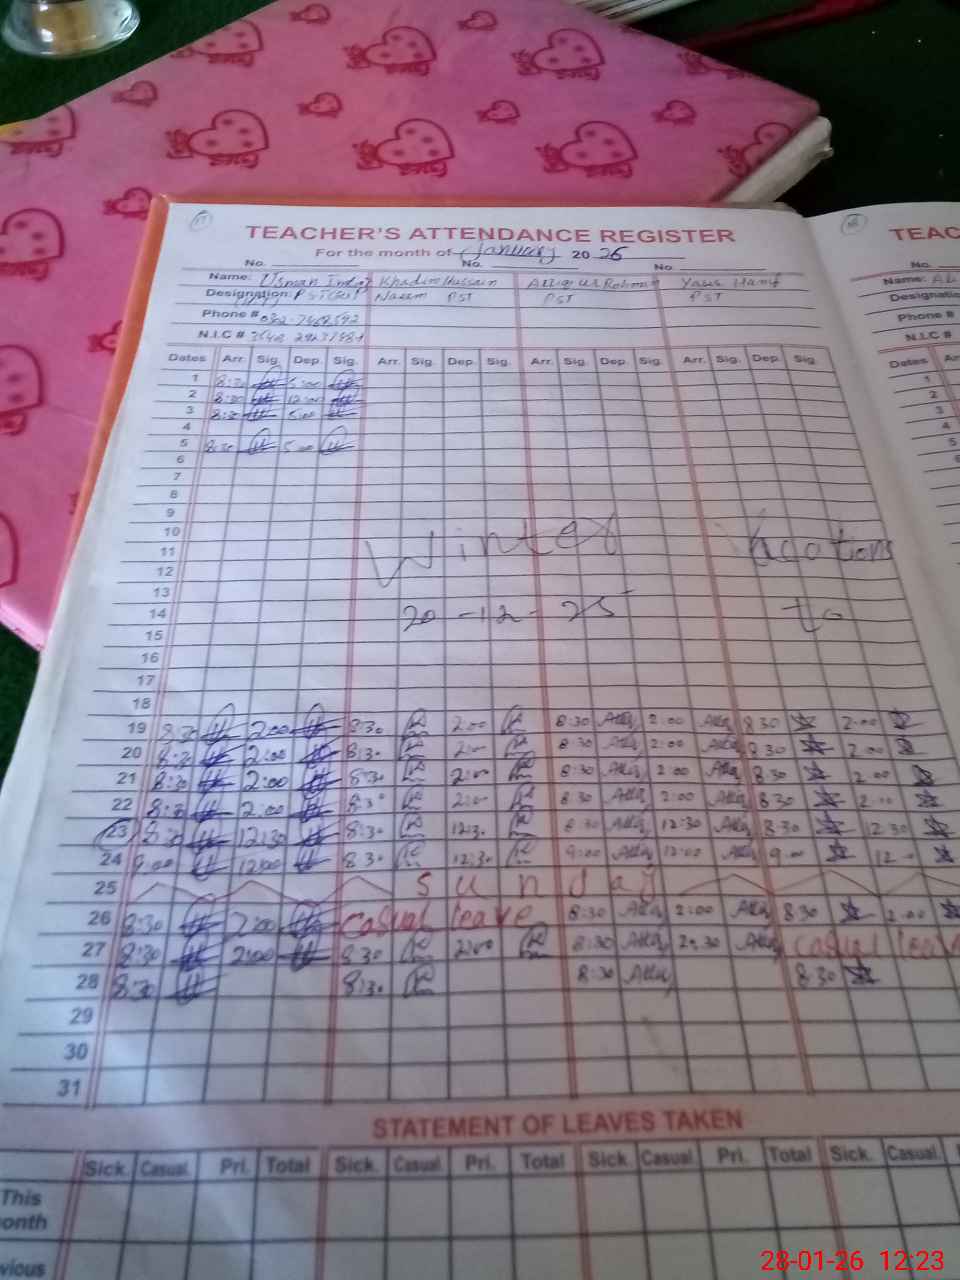 TEACHER'S ATTENDANCE REGISTER TEAC
For the month of January 2026
No. No. No. No.
Name: Usman Khadim Hussain Attiq ur Rehman Yasir Hanif Name: Ali
Designation: PST Naeem PST PST PST Designatio
Phone # Phone #
N.I.C # N.I.C #
Dates Arr. Sig. Dep. Sig. Arr. Sig. Dep. Sig. Arr. Sig. Dep. Sig. Arr. Sig. Dep. Sig. Dates
1 8:30 5:00 1
2 8:30 12:00 2
3 8:30 5:00 3
4 4
5 8:30 5:00 5
6
7
8
9
10
11 Winter Vacations
12
13
14 20-12-25 to
15
16
17
18
19 8:30 2:00 8:30 2:00 8:30 Attiq 2:00 Attiq 8:30 2:00
20 8:30 2:00 8:30 2:00 8:30 Attiq 2:00 Attiq 8:30 2:00
21 8:30 2:00 8:30 2:00 8:30 Attiq 2:00 Attiq 8:30 2:00
22 8:30 2:00 8:30 2:00 8:30 Attiq 2:00 Attiq 8:30 2:00
23 8:30 12:30 8:30 12:30 8:30 Attiq 12:30 Attiq 8:30 12:30
24 9:00 12:00 8:30 12:30 9:00 Attiq 12:00 Attiq 9:00 12:00
25 Sunday
26 8:30 2:00 Casual leave 8:30 Attiq 2:00 Attiq 8:30 2:00
27 8:30 2:00 8:30 2:00 8:30 Attiq 2:30 Attiq Casual leav
28 8:30 8:30 8:30 Attiq 8:30
29
30
31
STATEMENT OF LEAVES TAKEN
Sick. Casual. Pri. Total Sick. Casual. Pri. Total Sick. Casual. Pri. Total Sick. Casual.
This
onth
vious
28-01-26 12:23